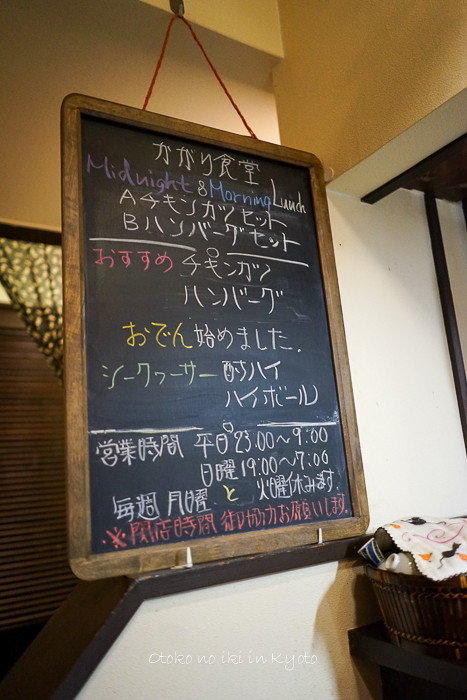 かがり食堂
Midnight & Morning Lunch
A.チキンカツセット
B.ハンバーグセット
おすすめ チキンカツ
ハンバーグ
おでん始めました.
シークヮーサー 酎ハイ
ハイボール
営業時間 平日 23.00～9:00
日曜 19:00～7:00
毎週 月曜と火曜休みます.
※閉店時間 御協力お願いします.
Otoko no iki in Kyoto